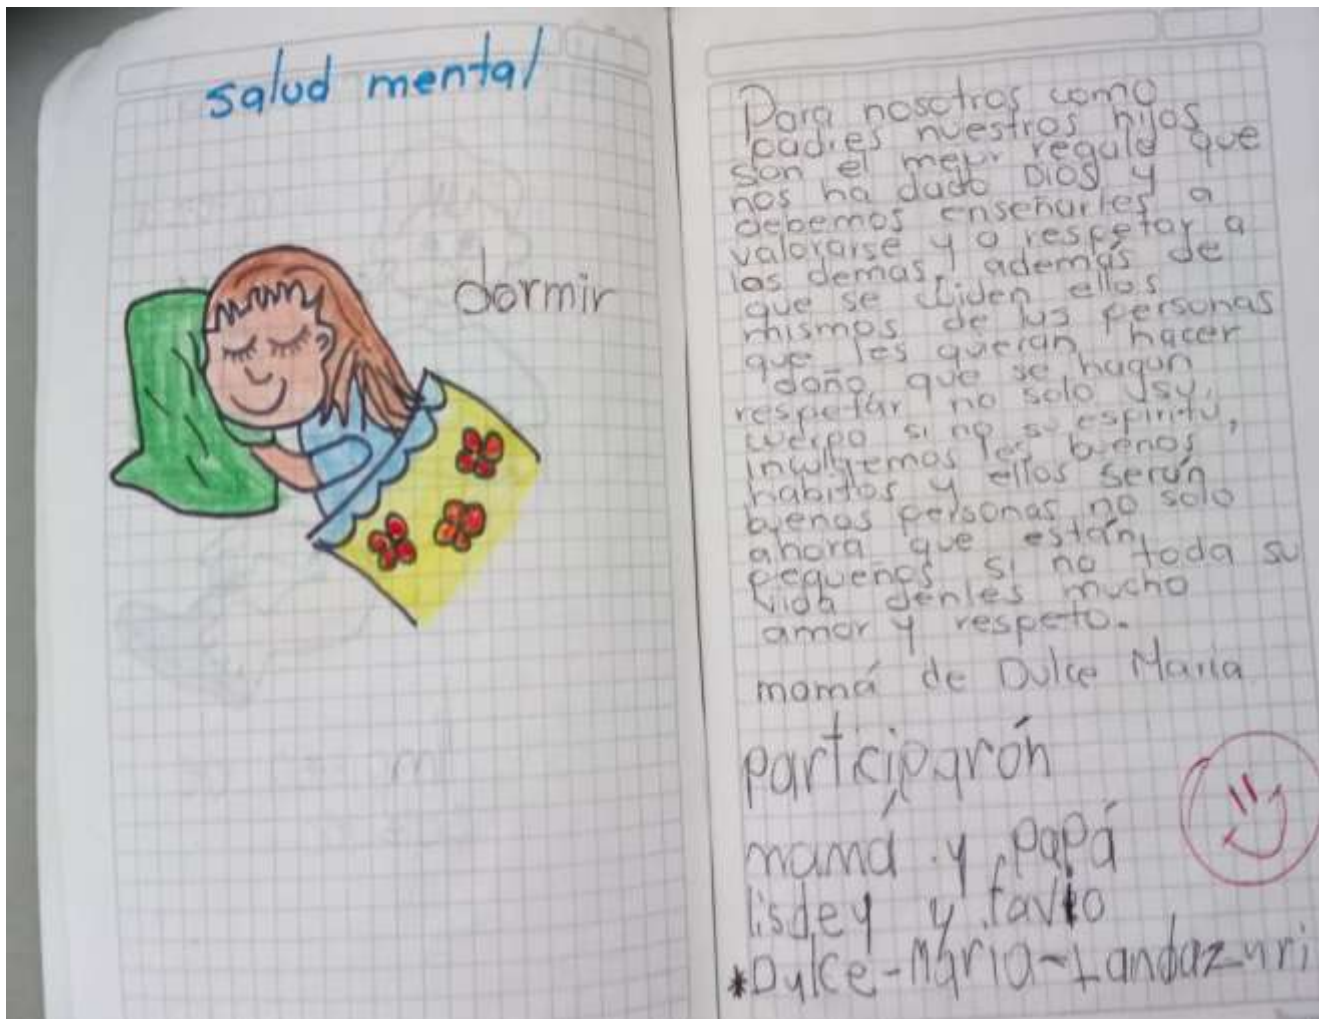 salud mental
dormir
Para nosotros como
padres nuestros hijos
son el mejor regalo que
nos ha dado DIOS y
debemos enseñarles a
valorarse y a respetar a
los demas, además de
que se cuiden ellos
mismos de las personas
que les queran hacer
daño, que se hagan
respetar no solo su
cuerpo si no su espiritu,
inculquemos les buenos
habitos y ellos serán
buenas personas no solo
ahora que están
pequeños si no toda su
vida denles mucho
amor y respeto.
mamá de Dulce Maria
participarón
mamá y papá
lisdey y favio
*Dulce-Maria-Landazuri